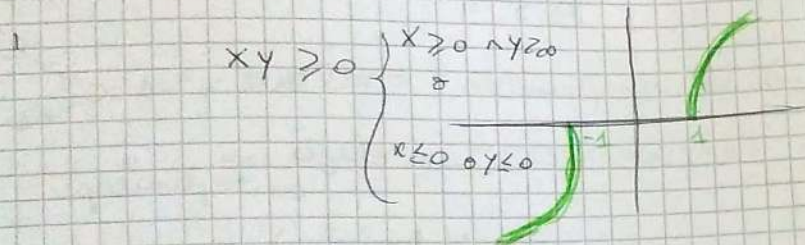 1
xy ≥ 0 { x ≥ 0 ∧ y ≥ 0
o
x ≤ 0 o y ≤ 0
-1 1